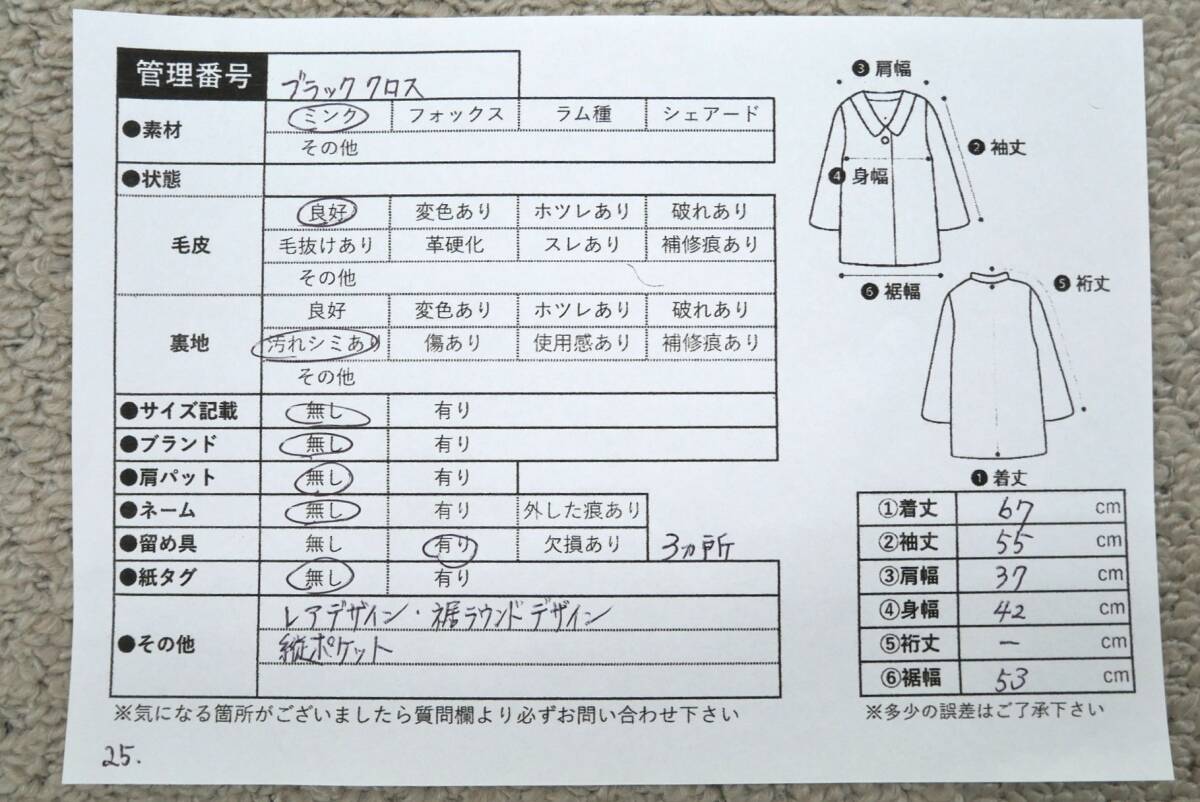 管理番号 ブラッククロス
●素材 ミンク フォックス ラム種 シェアード
その他
●状態
毛皮 良好 変色あり ホツレあり 破れあり
毛抜けあり 革硬化 スレあり 補修痕あり
その他
裏地 良好 変色あり ホツレあり 破れあり
汚れシミあり 傷あり 使用感あり 補修痕あり
その他
●サイズ記載 無し 有り
●ブランド 無し 有り
●肩パット 無し 有り
●ネーム 無し 有り 外した痕あり
●留め具 無し 有り 欠損あり 3ヵ所
●紙タグ 無し 有り
●その他 レアデザイン・裾ラウンドデザイン
縦ポケット
※気になる箇所がございましたら質問欄より必ずお問い合わせ下さい
25.
❸肩幅
❷袖丈
❹身幅
❻裾幅
❺裄丈
❶着丈
①着丈 67 cm
②袖丈 55 cm
③肩幅 37 cm
④身幅 42 cm
⑤裄丈 — cm
⑥裾幅 53 cm
※多少の誤差はご了承下さい